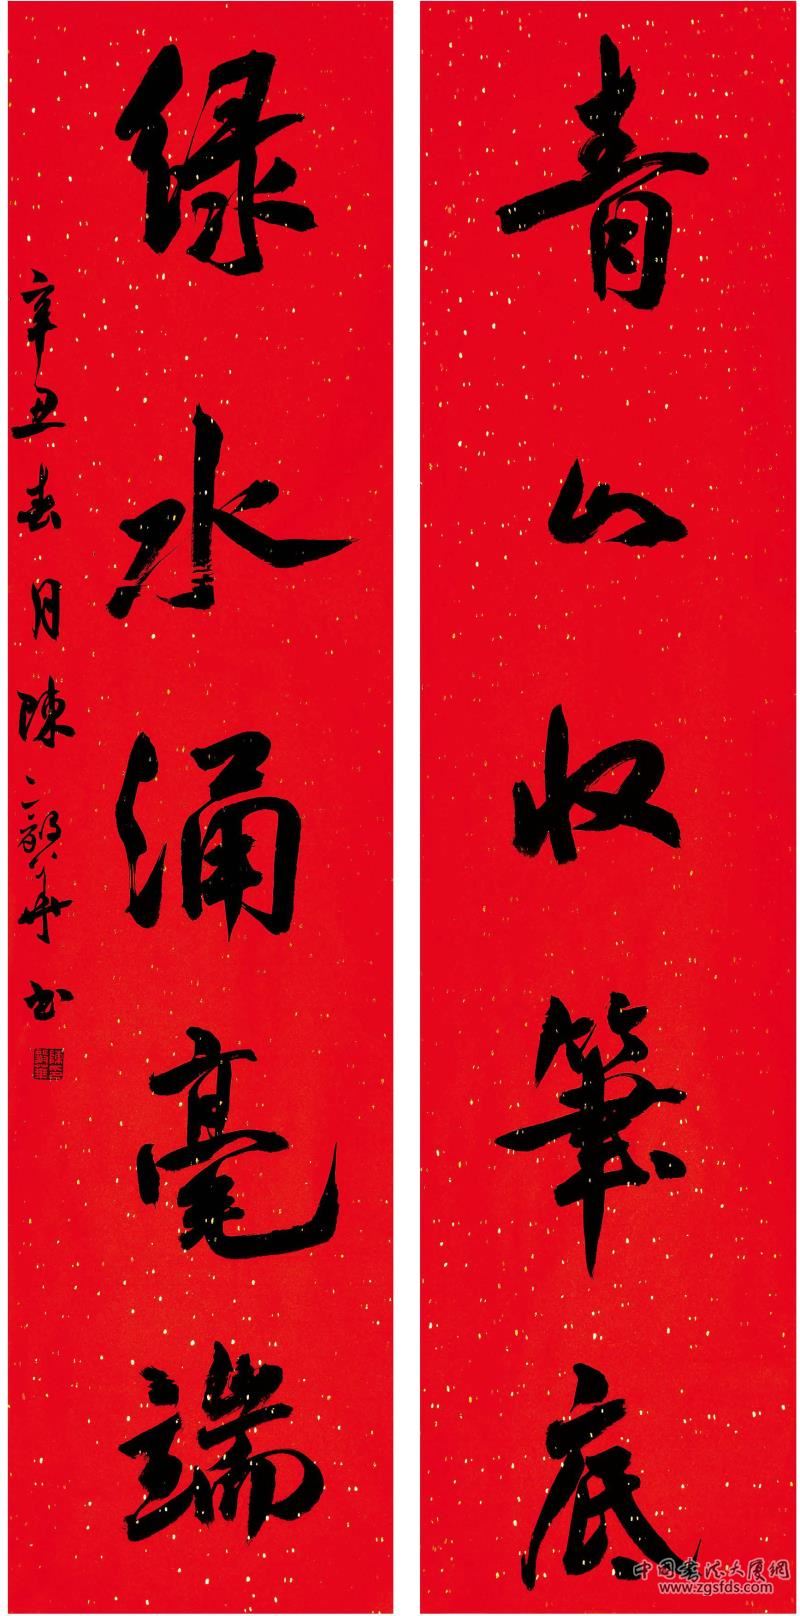 青山收筆底
绿水涌毫端
辛丑春月陳二韶華书
中國書法大厦網
www.zgsfds.com